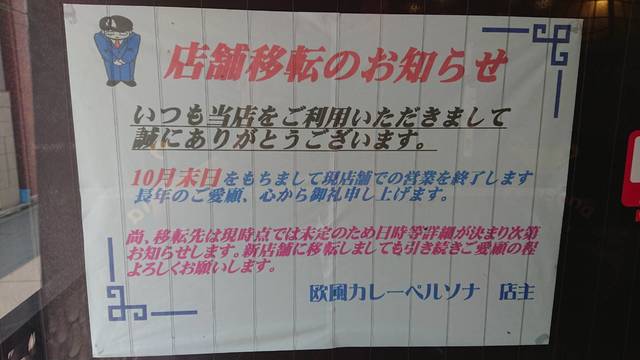 店舗移転のお知らせ
いつも当店をご利用いただきまして
誠にありがとうございます。
10月末日をもちまして現店舗での営業を終了します
長年のご愛顧、心から御礼申し上げます。
尚、移転先は現時点では未定のため日時等詳細が決まり次第
お知らせします。新店舗に移転しましても引き続きご愛顧の程
よろしくお願いします。
欧風カレーペルソナ 店主